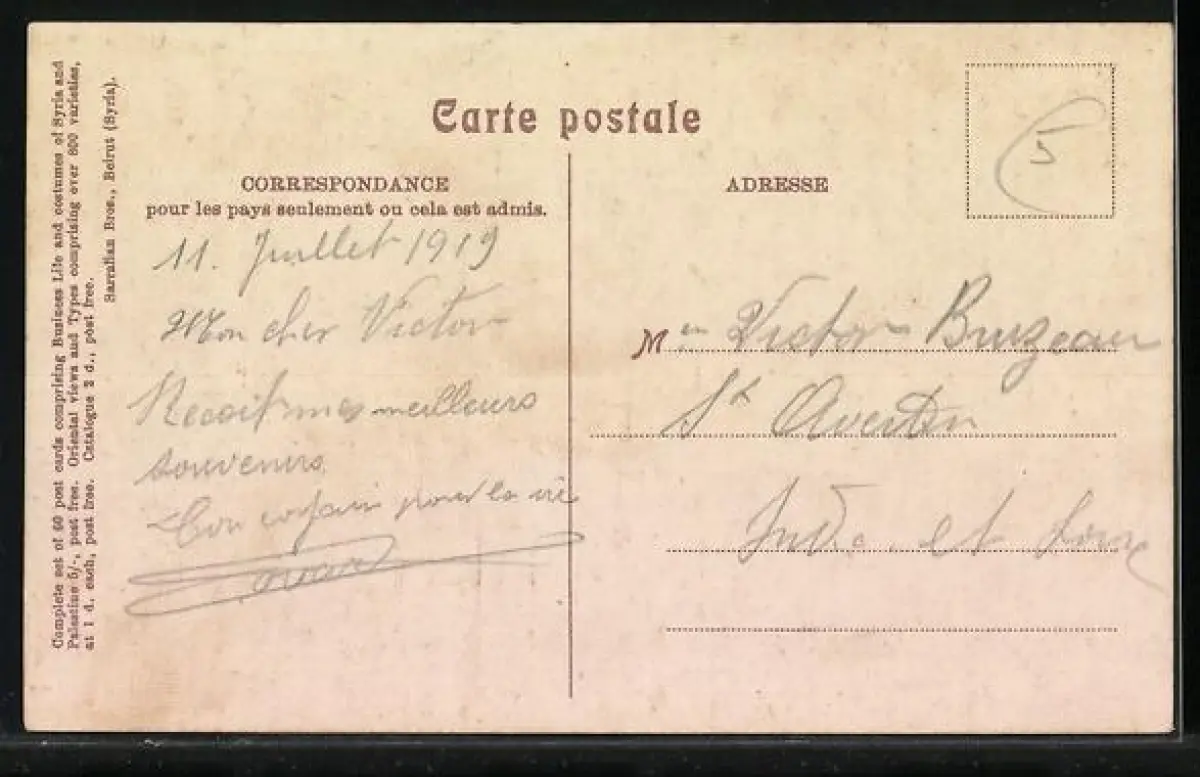 Complete set of 60 post cards comprising Business Life and costumes of Syria and
Palestine 5/-, post free. Oriental views and Types comprising over 800 varieties,
at 1 d. each, post free. Catalogue 2 d., post free.
Sarrafian Bros., Beirut (Syria).
Carte postale
CORRESPONDANCE
pour les pays seulement ou cela est admis.
11. Juillet 1919
Mon cher Victor
Recoit mes meilleurs
souvenirs
Ton copain pour la vie
ADRESSE
5
M Victor Bruzeau
St Avertin
Indre et Loire